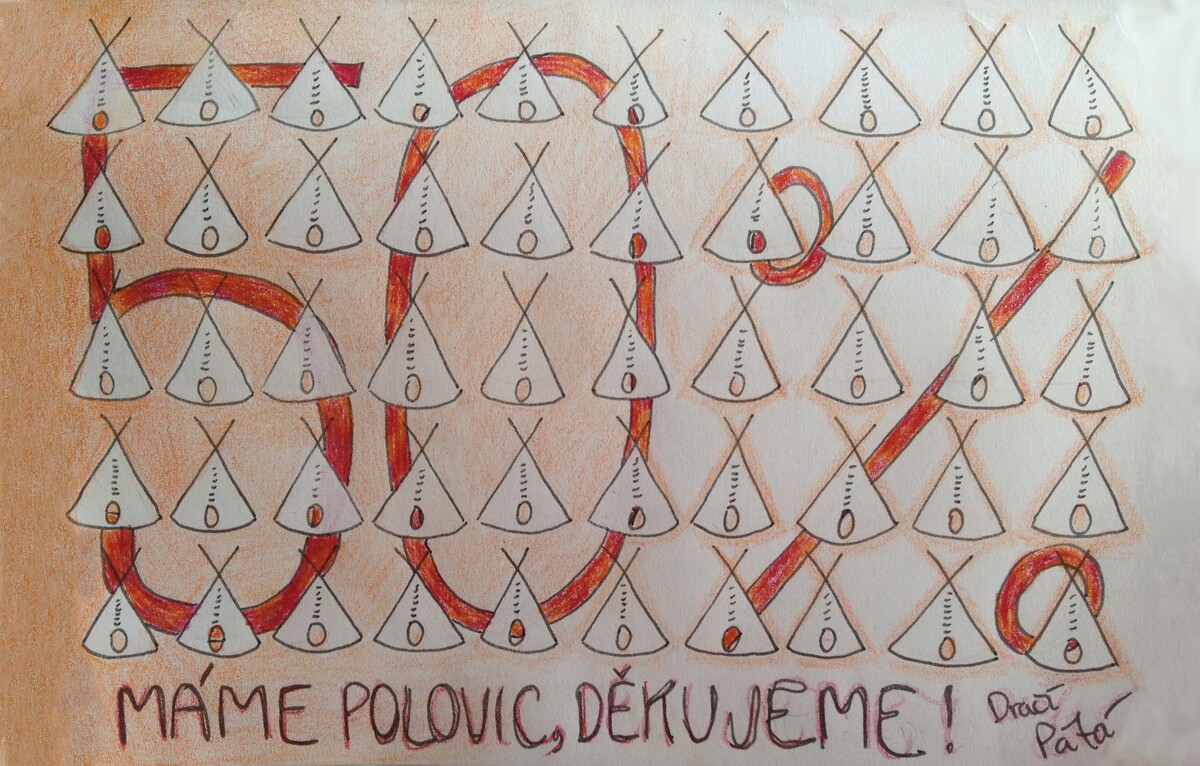 50%
MÁME POLOVIC, DĚKUJEME!
Dračí
Pátá